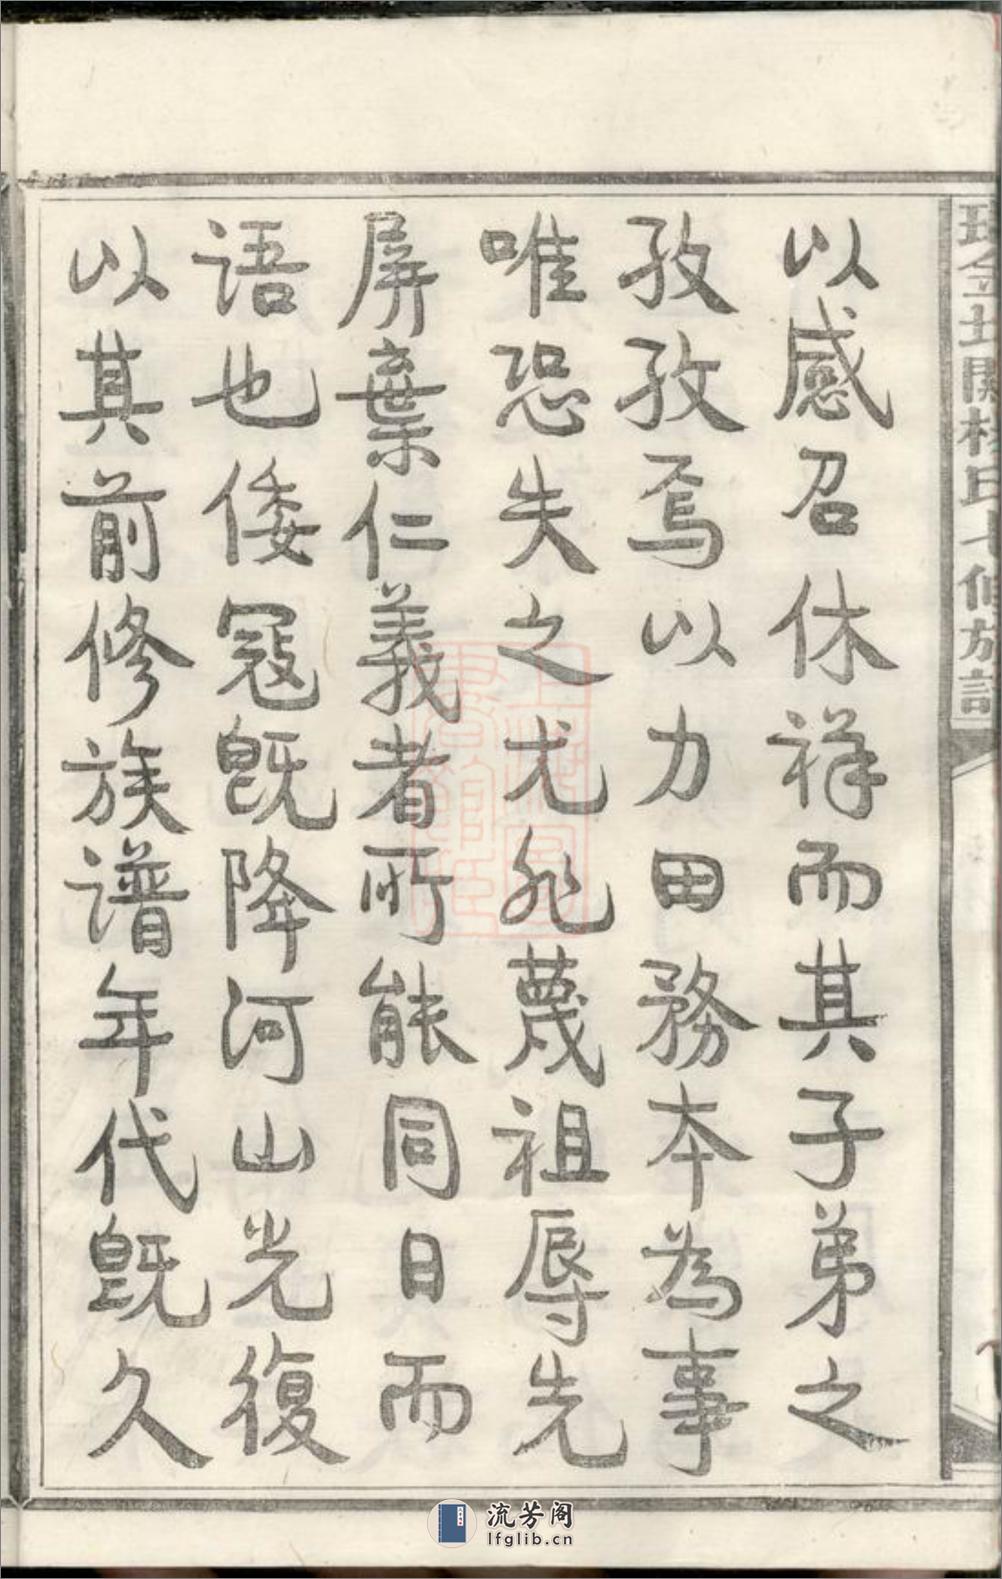 以感召休祥而其子弟之
孜孜焉以力田務本為事
唯恐失之尤非蔑祖辱先
屏棄仁義者所能同日而
语也倭寇既降河山光復
以其前修族谱年代既久
流芳阁
lfglib.cn